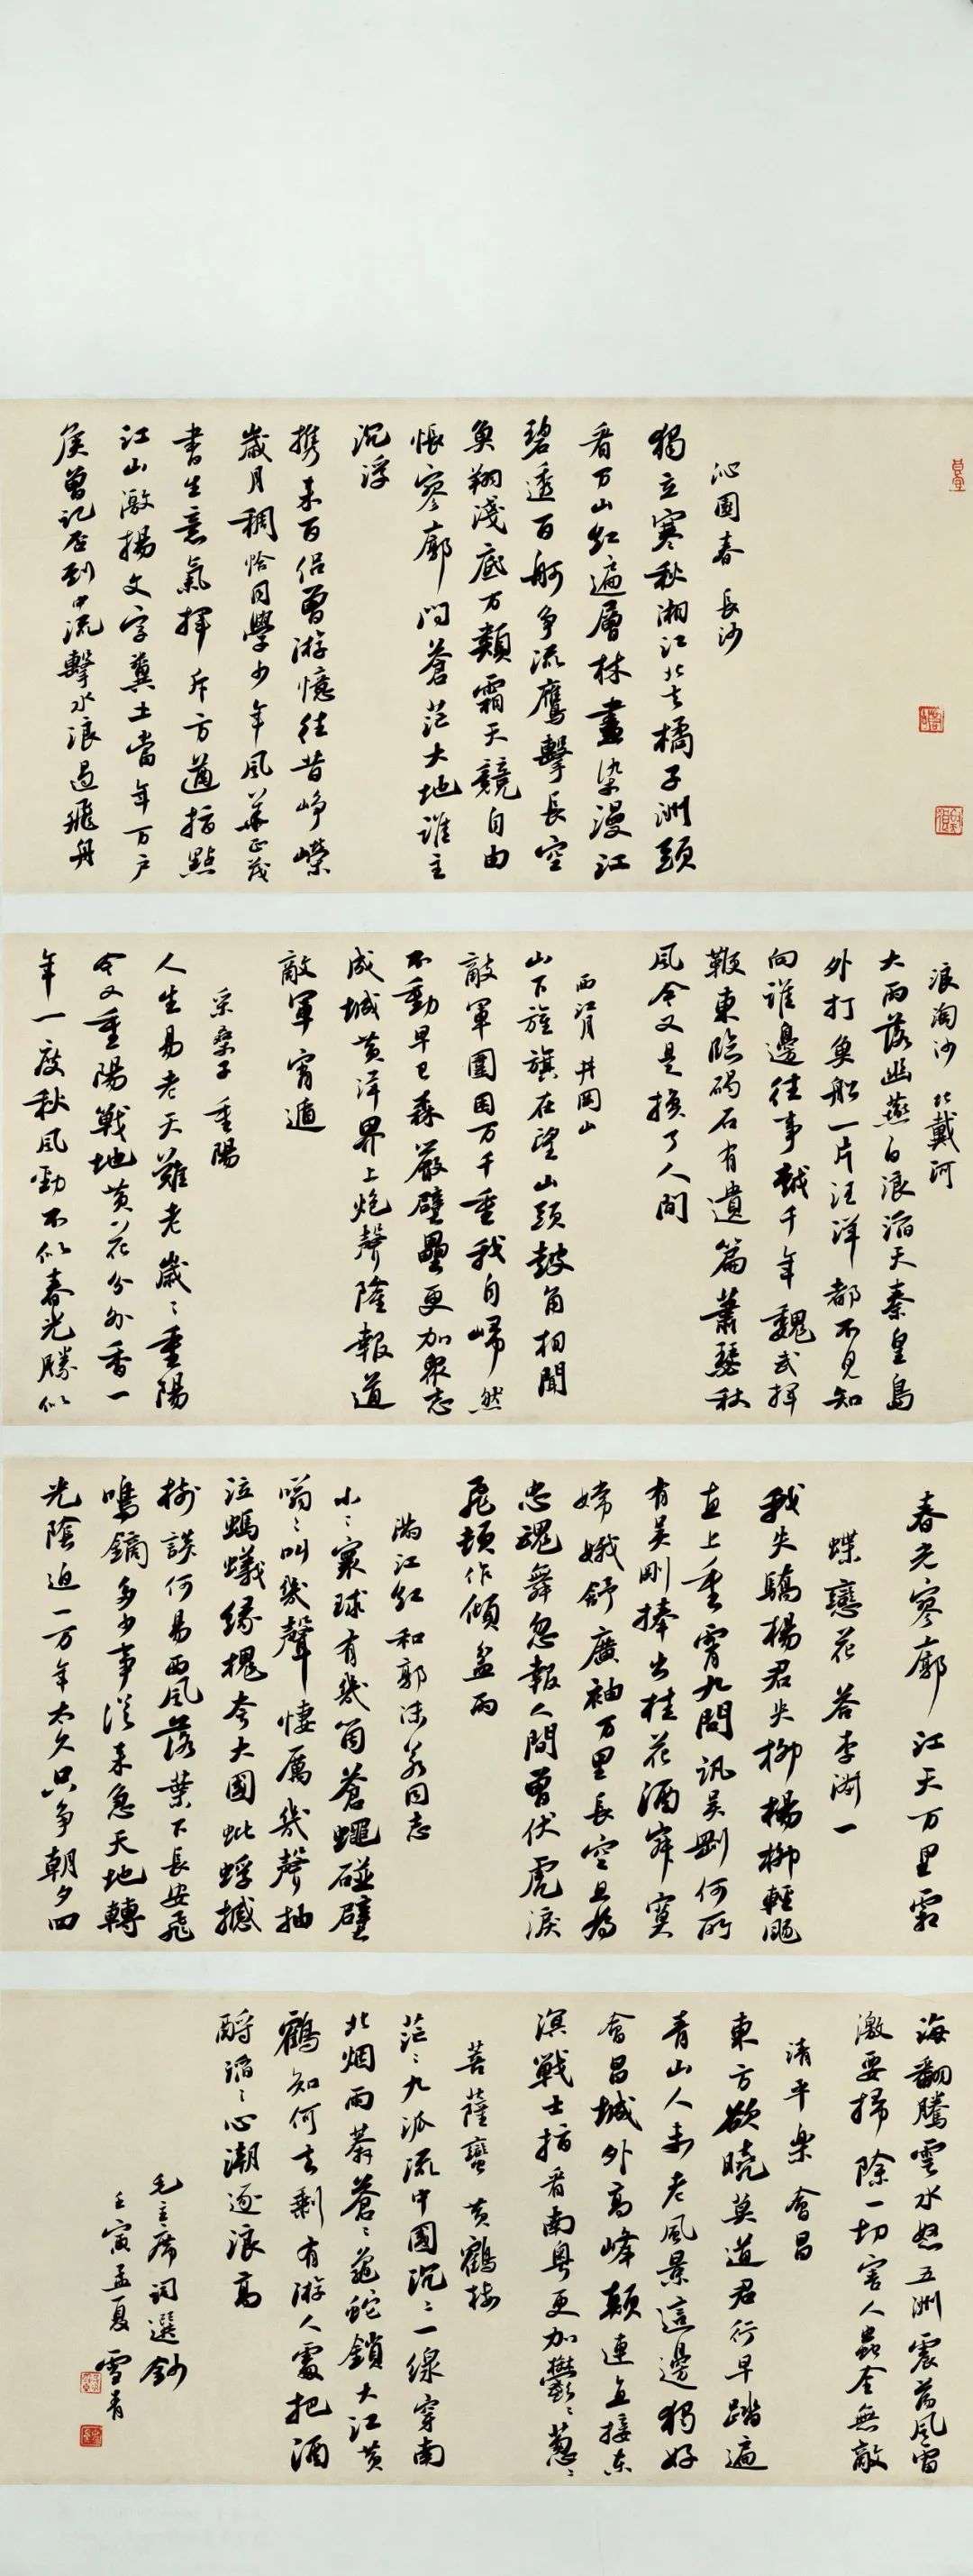 沁園春 長沙
獨立寒秋湘江北去橘子洲頭
看万山紅遍層林盡染漫江
碧透百舸争流鷹擊長空
魚翔淺底万類霜天競自由
悵寥廓問蒼茫大地誰主
沉浮
携来百侣曾游憶往昔崢嶸
歲月稠恰同學少年風華正茂
書生意氣揮斥方遒指點
江山激揚文字糞土當年万户
侯曾記否到中流擊水浪遏飛舟
浪淘沙 北戴河
大雨落幽燕白浪滔天秦皇島
外打魚船一片汪洋都不見知
向誰邊往事越千年魏武揮
鞭東臨碣石有遺篇蕭瑟秋
風今又是换了人間
西江月 井岡山
山下旌旗在望山頭鼓角相聞
敵軍圍困万千重我自巋然
不動早已森嚴壁壘更加衆志
成城黄洋界上炮聲隆報道
敵軍宵遁
采桑子 重陽
人生易老天難老歲〻重陽
今又重陽戰地黄花分外香一
年一度秋風勁不似春光勝似
春光寥廓江天万里霜
蝶戀花 答李淑一
我失驕楊君失柳楊柳輕颺
直上重霄九問訊吴剛何所
有吴剛捧出桂花酒寂寞
嫦娥舒廣袖万里長空且為
忠魂舞忽報人間曾伏虎淚
飛頓作傾盆雨
滿江紅 和郭沫若同志
小〻寰球有幾箇蒼蠅碰壁
嗡〻叫幾聲悽厲幾聲抽
泣螞蟻緣槐夸大國蚍蜉撼
樹談何易西風落葉下長安飛
鳴鏑多少事從来急天地轉
光陰迫一万年太久只争朝夕四
海翻騰雲水怒五洲震荡風雷
激要掃除一切害人蟲全無敵
清平樂 會昌
東方欲曉莫道君行早踏遍
青山人未老風景這邊獨好
會昌城外高峰顛連直接東
溟戰士指看南粤更加鬱〻葱〻
菩薩蠻 黄鶴樓
茫〻九派流中國沉〻一線穿南
北烟雨莽蒼〻龜蛇鎖大江黄
鶴知何去剩有游人處把酒
酹滔〻心潮逐浪高
毛主席詞選鈔
壬寅孟夏雪青